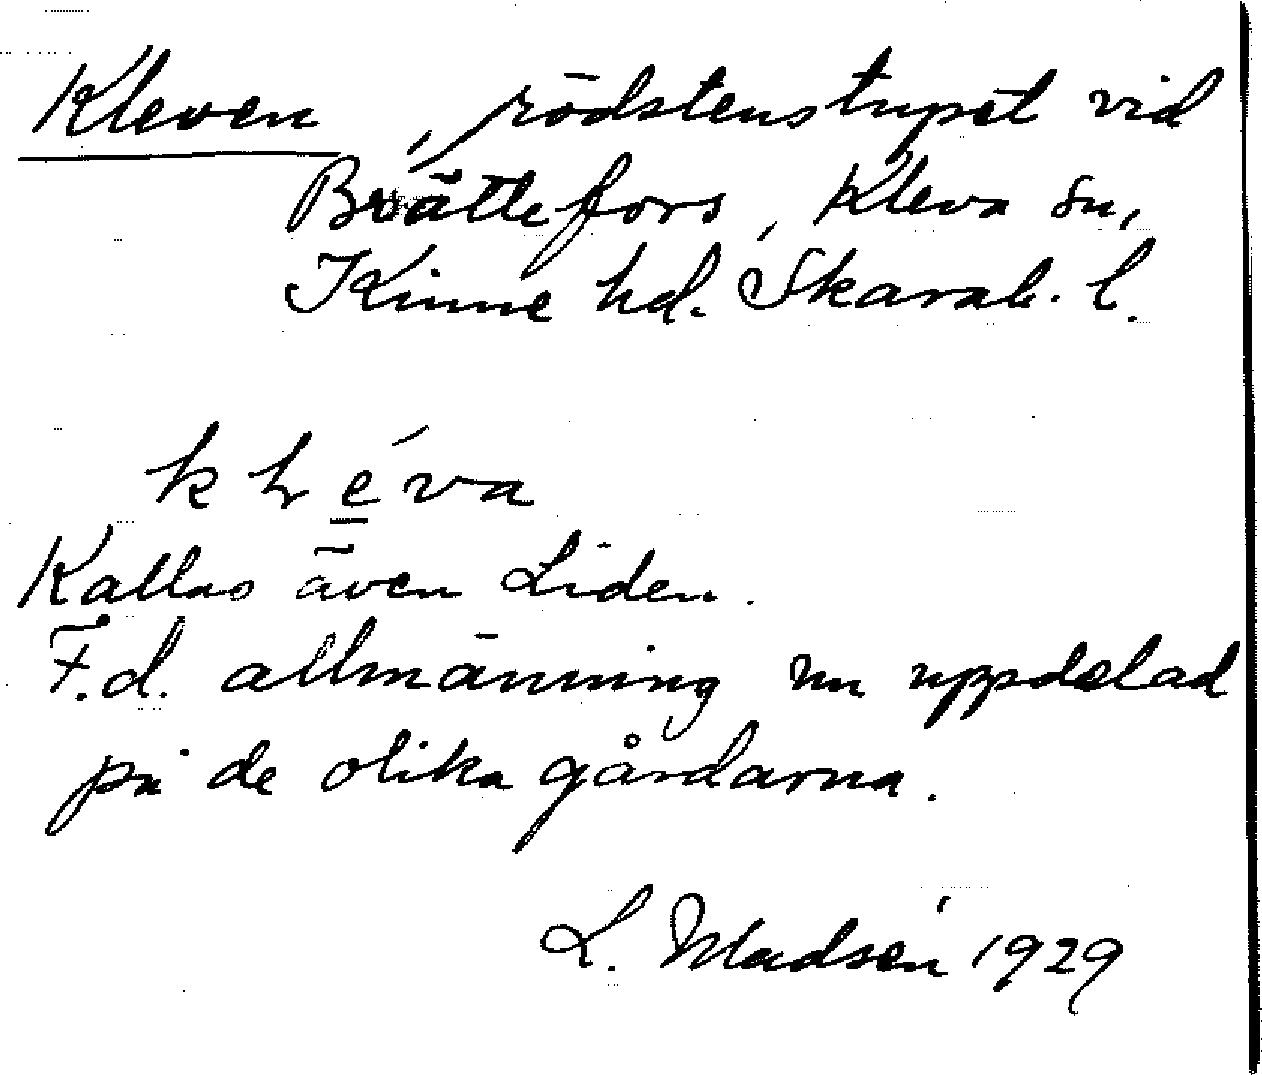 Kleven, rödstenstupet vid
Brättefors, Kleva sn,
Kinne hd. Skarab. l.
k l e̲´ va
Kallas även Liden.
F.d. allmänning nu uppdelad
på de olika gårdarna.
L. Madsén 1929